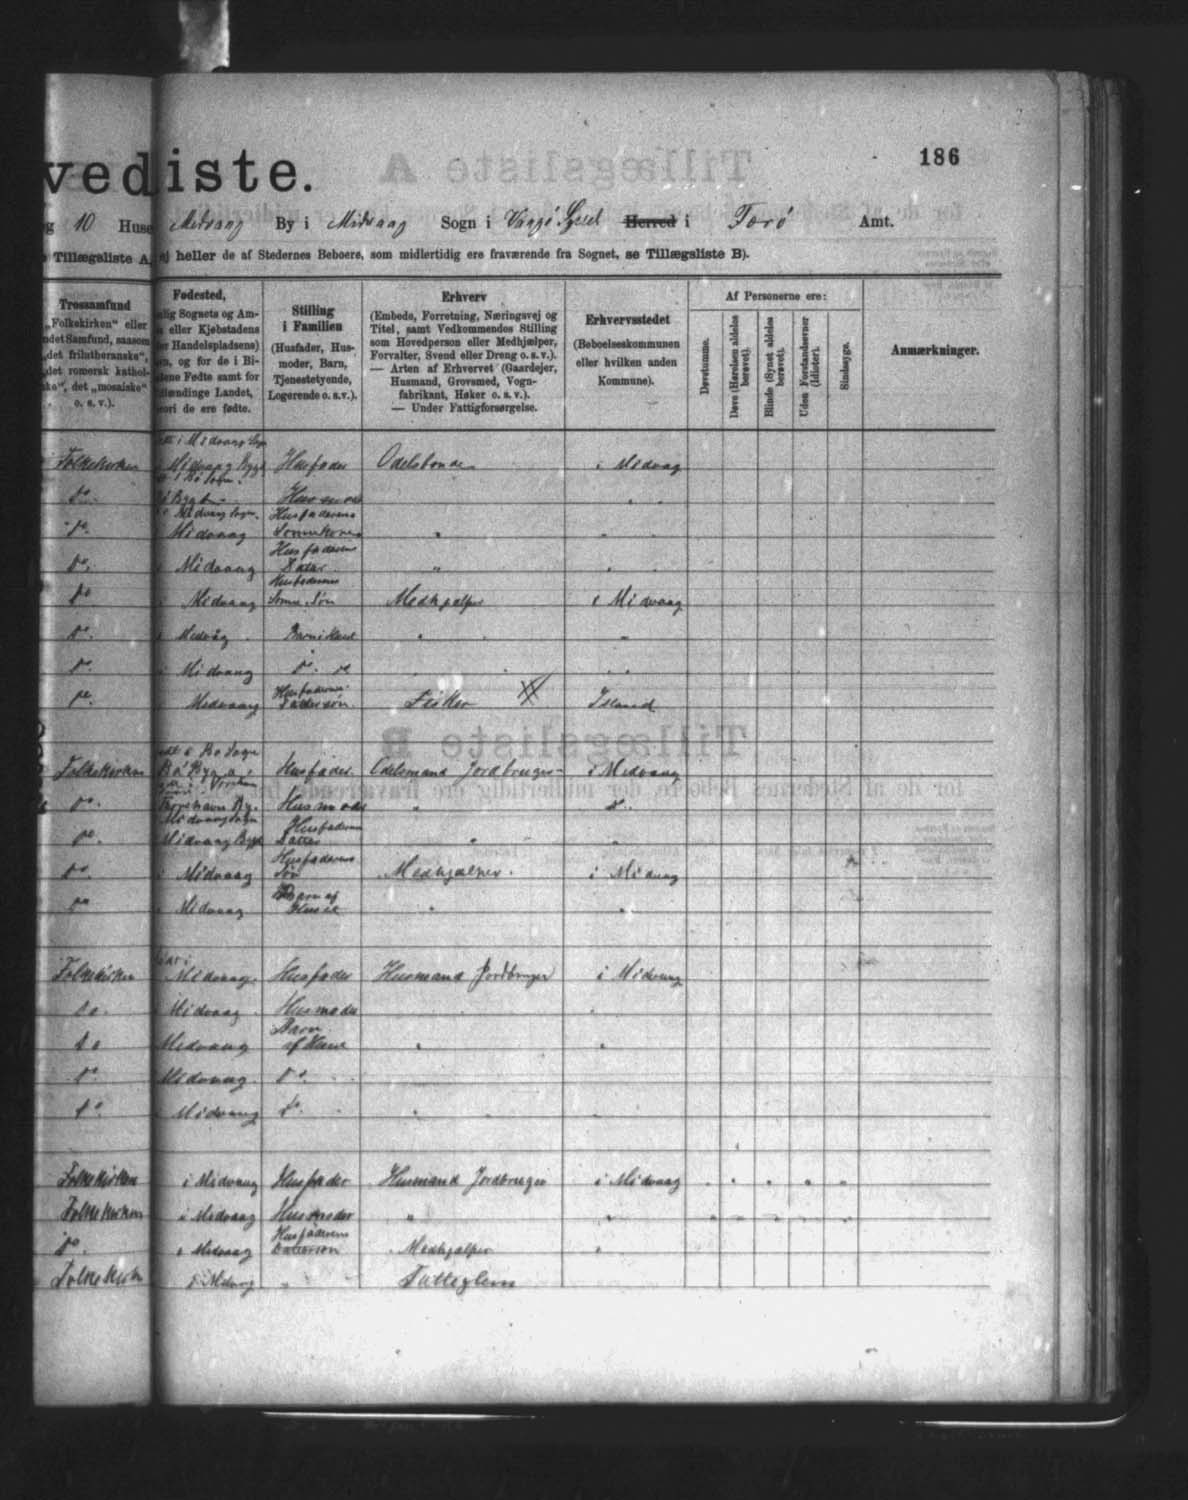 186
vedliste.
g 10 Huse Midvaag By i Midvaag Sogn i Vaagø Syssel Herred i Færø Amt.
Tillægsliste A, ej heller de af Stedernes Beboere, som midlertidig ere fraværende fra Sognet, se Tillægsliste B).
Trossamfund
„Folkekirken“ eller
ndet Samfund, saasom
„det frilutheranske“,
„det romersk kathol-
ske“, det „mosaiske“
o. s. v.).
Fødested,
nlig Sognets og Am-
s eller Kjøbstadens
er Handelspladsens)
vn, og for de i Bi-
dene Fødte samt for
dlændinge Landet,
vori de ere fødte.
Stilling
i Familien
(Husfader, Hus-
moder, Barn,
Tjenestetyende,
Logerende o. s. v.).
Erhverv
(Embede, Forretning, Næringsvej og
Titel, samt Vedkommendes Stilling
som Hovedperson eller Medhjælper,
Forvalter, Svend eller Dreng o. s. v.).
— Arten af Erhvervet (Gaardejer,
Husmand, Grovsmed, Vogn-
fabrikant, Høker o. s. v.).
— Under Fattigforsørgelse.
Erhvervsstedet
(Beboelseskommunen
eller hvilken anden
Kommune).
Af Personerne ere:
Døvstumme.
Døve (Hørelsen aldeles
berøvet).
Blinde (Synet aldeles
berøvet).
Uden Forstandsevner
(Idioter).
Sindssyge.
Anmærkninger.
i Midvaag Sogn
Folkekirken Midvaag Bygd Husfader Odelsbonde i Midvaag
i Bø Sogn
do. Bygd Husmoder
Midvaag Sogn. Husfaderens
do. Midvaag Sønnekone "
Husfaderens
do. i Midvaag Datter "
Husfaderens
do i Midvaag Sønne Søn Medhjælper i Midvaag
do. i Midvaag Barn i Huset "
do. i Midvaag do. do
Husfaderens
do. Midvaag Fisker Island
i Bø Sogn
Folkekirken Bø Bygd Husfader. Odelsmand Jordbruger i Midvaag
do. By. Husmoder " do.
Midvaag Sogn Husfaderens
do. Midvaag Bygd Datter "
Husfaderens
do. i Midvaag Søn Medhjælper. i Midvaag
Barn af
do i Midvaag Huset "
Folkekirken Midvaag. Husfader Husmand Jordbruger i Midvaag
do. Midvaag Husmoder
Barn
do Midvaag af Huset "
do. Midvaag do.
do. Midvaag do.
Folkekirken i Midvaag Husfader Husmand Jordbruger i Midvaag
Folkekirken i Midvaag Husmoder "
Husfaderens
do. i Midvaag Dattersøn Medhjælper
Folkekirken i Midvaag " Fattiglem